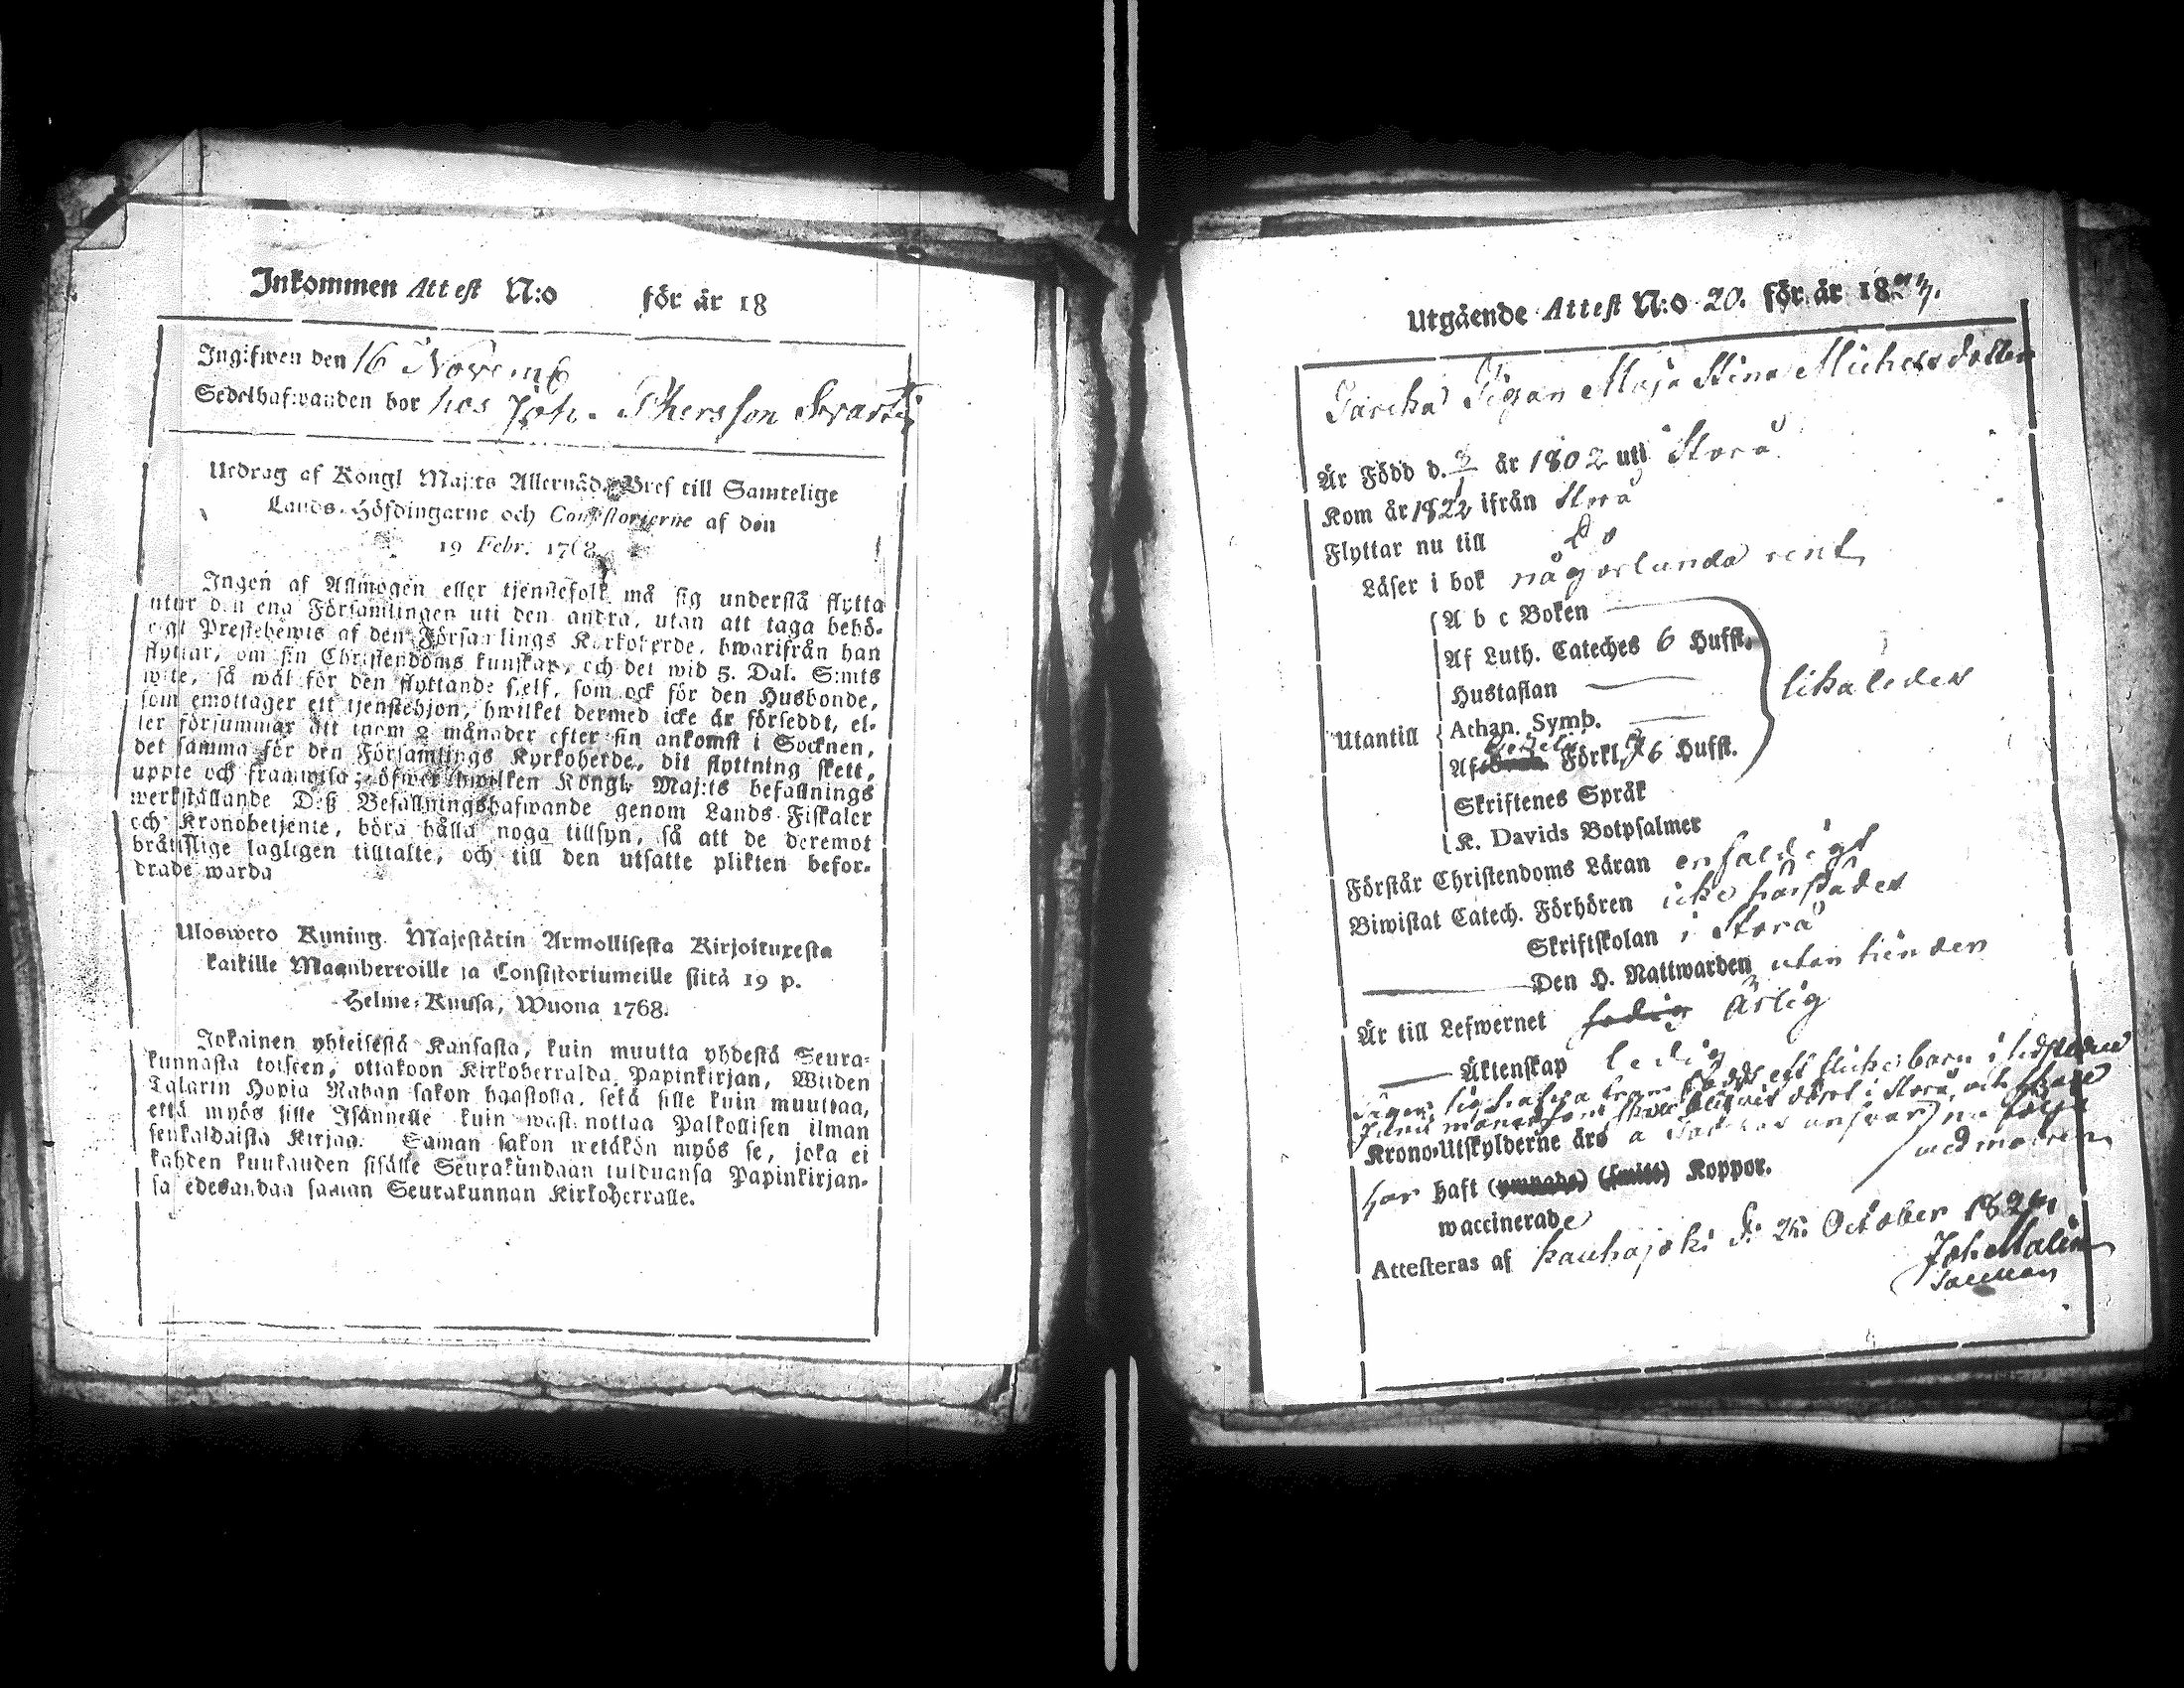 Inkommen Attest N:o för år 18
Ingifwen den 16 Novemb
Sedelhafwanden bor hos Joh. Phersson Svart
Utdrag af Kongl Maj:ts Allernåd. Bref till Samtelige
Lands-Höfdingarne och Consistorierne af den
19 Febr. 1768
Ingen af Allmogen eller tjenstefolk må sig understå flytta
utur den ena Församlingen uti den andra, utan att taga behö-
rigt Prestebewis af den Församlings Kyrkoherde, hwarifrån han
flyttar, om sin Christendoms kunskap, och det wid 5. Dal. S:mts
wite, så wäl för den flyttande sielf, som ock för den Husbonde,
som emottager ett tjenstehjon, hwilket dermed icke är försedt, el-
ler försummar att inom 2 månader efter sin ankomst i Socknen,
det samma för den Församlings Kyrkoherde, dit flyttning skett,
uppte och framwisa; öfwer hwilken Kongl. Maj:ts befallnings
werkställande Deß Befallningshafwande genom Lands Fiskaler
och Kronobetjente, böra hålla noga tillsyn, så att de deremot
bråttslige lagligen tilltalte, och till den utsatte plikten befor-
drade warda
Ulosweto Kuning. Majestätin Armollisesta Kirjoituxesta
kaikille Maanherroille ja Consistoriumeille siitä 19 p.
Helme-Kuusa, Wuona 1768.
Jokainen yhteisestä Kansasta, kuin muutta yhdestä Seura-
kunnasta toiseen, ottakoon Kirkoherralda Papinkirjan, Wiiden
Talarin Hopia Rahan sakon haastolla, sekä sille kuin muuttaa,
että myös sille Isännelle kuin wastanottaa Palkollisen ilman
senkaldaista Kirjaa. Saman sakon wetäkön myös se, joka ei
kahden kuukauden sisälle Seurakundaan tulduansa Papinkirjan-
sa edesandaa saman Seurakunnan Kirkoherralle.
Utgående Attest N:o 20. för år 1824.
Pigan Maja Stina Michelsdotter
Är Född d. 2 år 1802 uti Storå
Kom år 1822 ifrån Storå
Flyttar nu till Do
Läser i bok någorlunda rent
Utantill
A b c Boken
Af Luth. Cateches 6 Hufst.
Hustaflan
Athan. Symb.
Af Förkl. 6 Hufst.
Skriftenes Språk
K. Davids Botpsalmer
likaledes
Förstår Christendoms Läran enfaldigt
Biwistat Catech. Förhören icke härstädes
Skriftskolan i Storå
Den H. Nattwarden utan tienden
Är till Lefwernet ärlig
Äktenskap ledig
Krono-Utskylderne äro
med modren
har haft (ympade) (smitt) Koppor.
waccinerade
Attesteras af Kauhajoki d. October 1824
Joh Malin
Sacellan